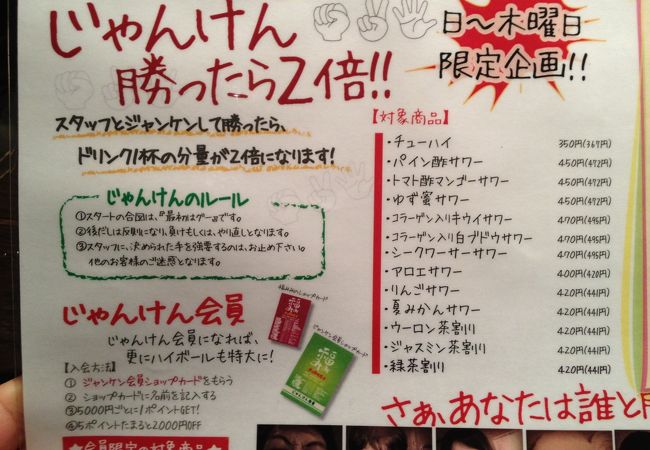 じゃんけん
勝ったら2倍!!
日〜木曜日
限定企画!!
スタッフとジャンケンして勝ったら、
ドリンク1杯の分量が2倍になります!
じゃんけんのルール
①スタートの合図は、『最初はグー』です。
②後だしは反則になり、負けもしくは、やり直しとなります。
③スタッフに、決められた手を強要するのは、お止め下さい。
他のお客様のご迷惑となります。
【対象商品】
・チューハイ 350円(367円)
・パイン酢サワー 450円(472円)
・トマト酢マンゴーサワー 450円(472円)
・ゆず蜜サワー 450円(472円)
・コラーゲン入りキウイサワー 470円(495円)
・コラーゲン入り白ブドウサワー 470円(495円)
・シークワーサーサワー 470円(495円)
・アロエサワー 400円(420円)
・りんごサワー 420円(441円)
・夏みかんサワー 420円(441円)
・ウーロン茶割り 420円(441円)
・ジャスミン茶割り 420円(441円)
・緑茶割り 420円(441円)
じゃんけん会員
じゃんけん会員になれば、
更にハイボールも特大に!
【入会方法】
① ジャンケン会員ショップカードをもらう
② ショップカードに名前を記入する
③5000円ごとに1ポイントGET!
④5ポイントたまると2000円OFF
★会員限定の対象商品★
ジャンケン会員ショップカード
福
さぁ、あなたは誰と